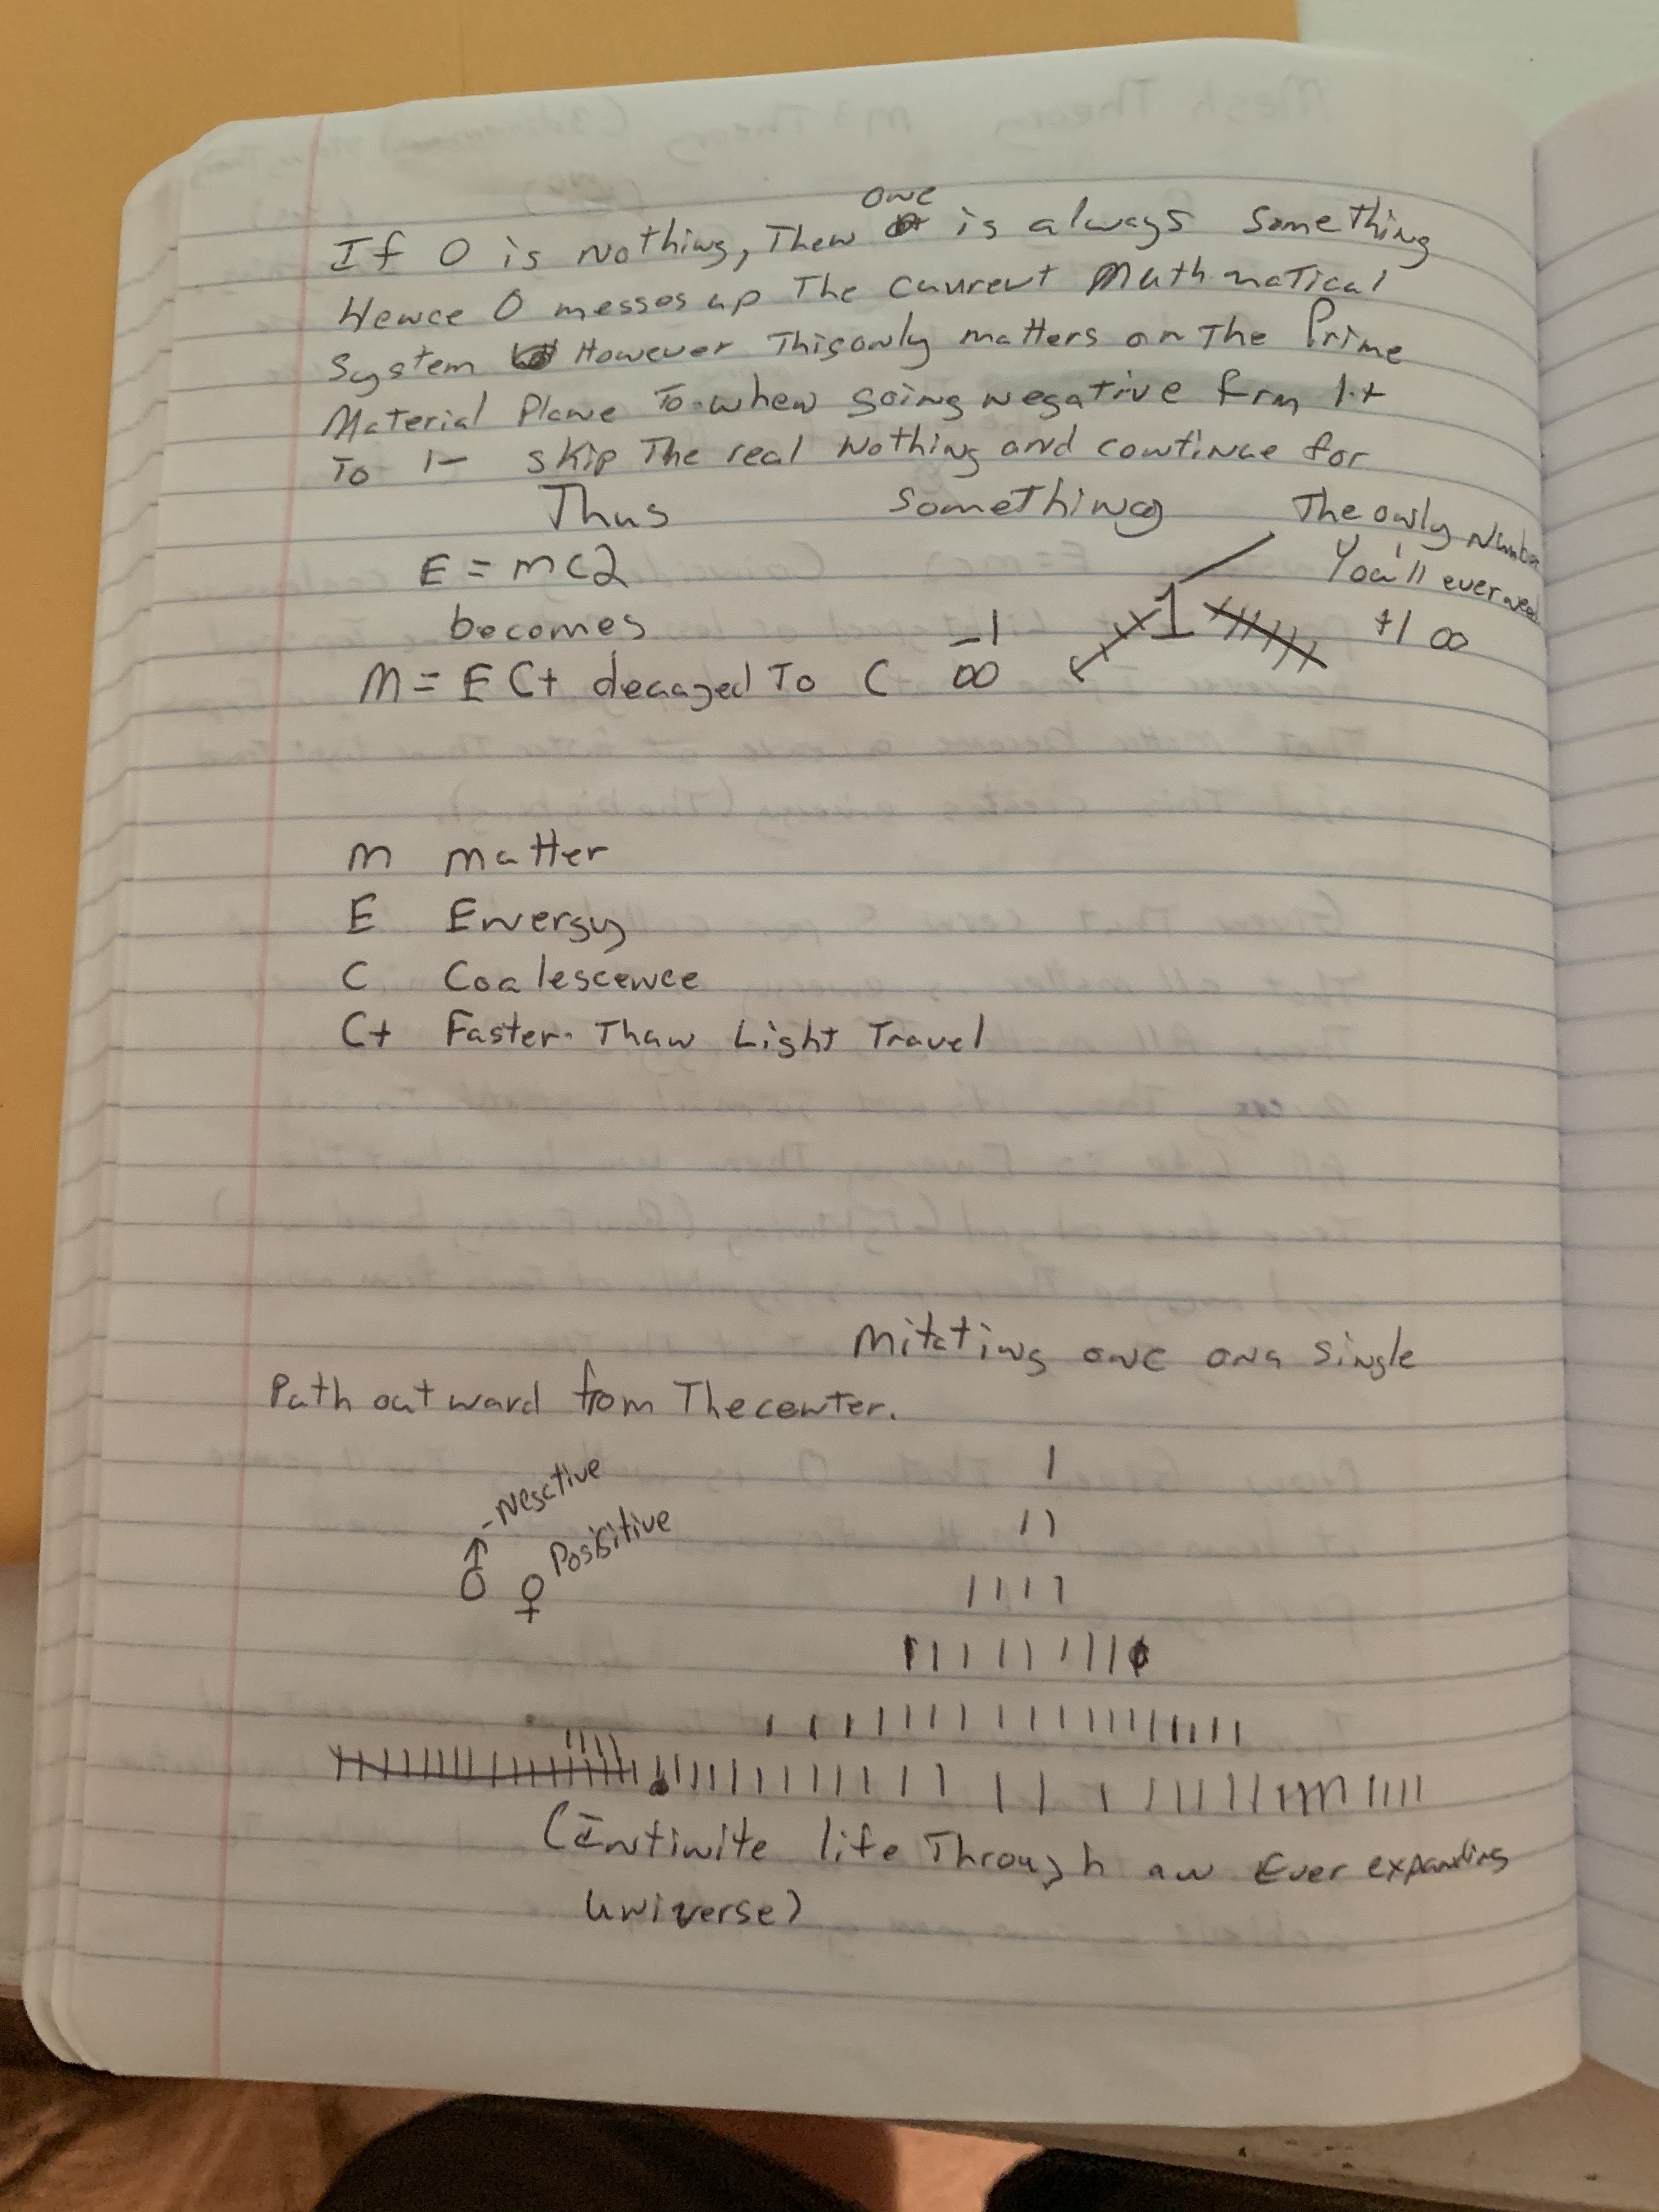 one
If 0 is Nothing, Then is always Something
Hence 0 messes up The current Mathmatical
System However This only matters on The Prime
Material Plane To when going negative frm 1+
To 1- skip The real Nothing and continue for
Thus Something The only Number
You'll ever need
E = mc2
becomes
-1 1 +1 ∞
M = E C+ decayed To C ∞
M matter
E Energy
C Coalescence
C+ Faster Than Light Travel
one on a Single
Path outward from The center.
- Negative
♂ ♀ Posisitive
(Infinite life Through an Ever expanding
Universe)